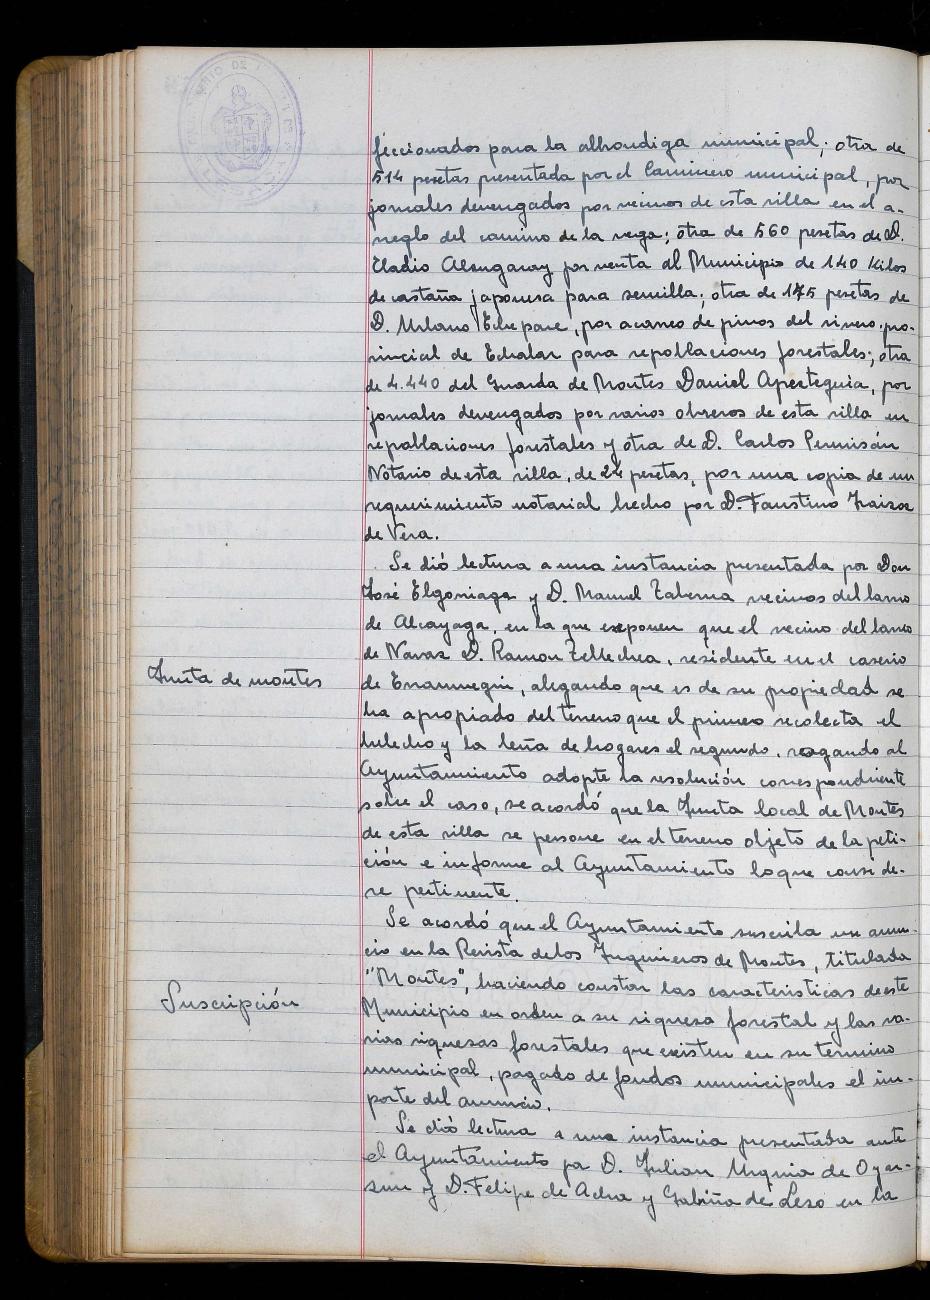 feccionados para la alhondiga municipal; otra de
514 pesetas presentada por el Caminero municipal, por
jornales devengados por vecinos de esta villa en el a-
rreglo del camino de la vega; otra de 560 pesetas de D.
Eladio Alzugaray por venta al Municipio de 140 Kilos
de castaña japonesa para semilla; otra de 175 pesetas de
D. Milano Echepare, por acarreo de pinos del vivero pro-
vincial de Echalar para repoblaciones forestales; otra
de 4.440 del Guarda de Montes Daniel Aperteguia, por
jornales devengados por varios obreros de esta villa en
repoblaciones forestales y otra de D. Carlos
Notario de esta villa, de 24 pesetas, por una copia de un
requerimiento notarial hecho por D. Faustino
de Vera.
Se dió lectura a una instancia presentada por Don
José Elgorriaga y D. Manuel Taberna vecinos del barrio
de Alcayaga, en la que exponen que el vecino del barrio
de Navaz D. Ramon Tellechea, residente en el caserio
Junta de montes
de alegando que es de su propiedad se
ha apropiado del terreno que el primero recolecta el
helecho y la leña de hogares el segundo, rogando al
Ayuntamiento adopte la resolución correspondiente
sobre el caso, se acordó que la Junta local de Montes
de esta villa se persone en el terreno objeto de la peti-
ción e informe al Ayuntamiento lo que conside-
re pertinente.
Se acordó que el Ayuntamiento suscriba un anun-
cio en la Revista de los Ingenieros de Montes, titulada
"Montes", haciendo constar las caracteristicas de este
Suscripción
Municipio en orden a su riqueza forestal y las va-
rias riquezas forestales que existen en su termino
municipal, pagado de fondos municipales el im-
porte del anuncio.
Se dió lectura a una instancia presentada ante
el Ayuntamiento por D. Julian Urquia de Oyar-
zun y D. Felipe de Adra y Gabiña de Lezo en la